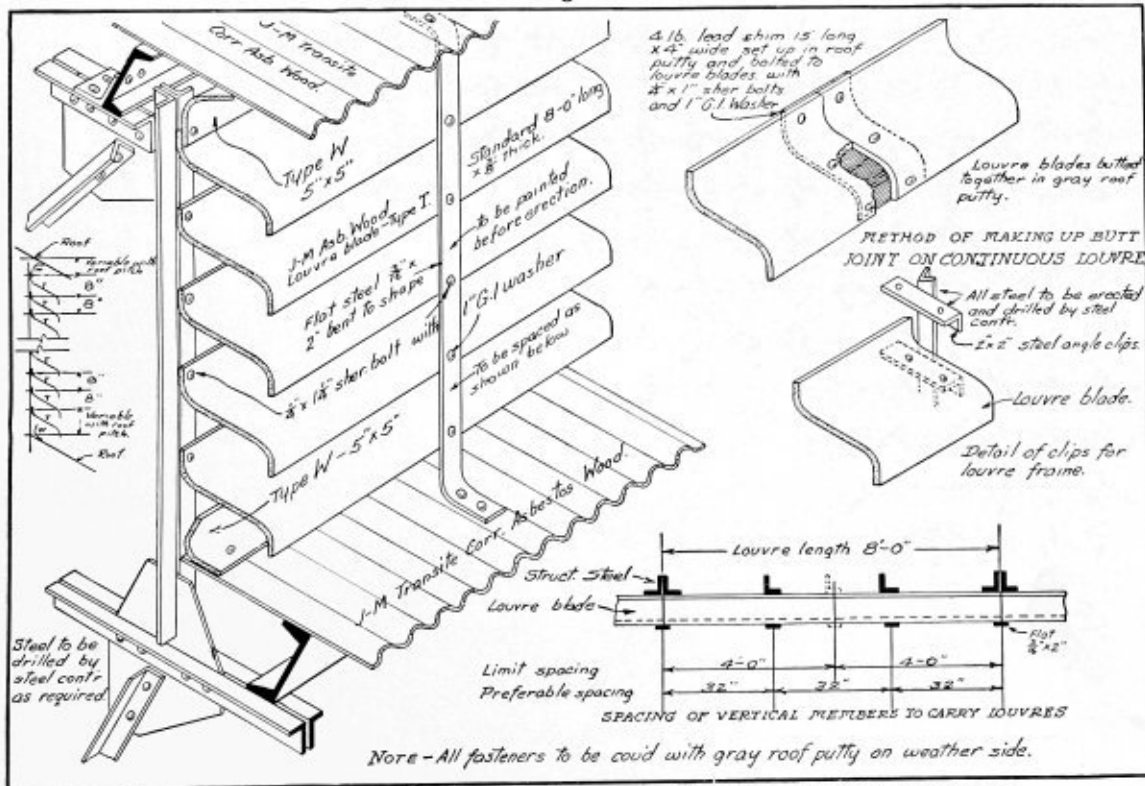 J-M Transite
Corr. Asb. Wood.
Type W
5" x 5"
Standard 8'-0" long
x 3/8" thick.
J-M Asb. Wood
Louvre blade - Type T.
to be painted
before erection.
Flat steel 3/16" x
2" bent to shape
1/4" x 1 1/4" sher. bolt with
1" G.I. washer
To be spaced as
shown below
Type W - 5" x 5"
J-M Transite Corr. Asbestos Wood.
Roof
Variable with
roof pitch
8"
8"
8"
8"
Variable
with roof
pitch.
Roof
Steel to be
drilled by
steel contr
as required
4 lb. lead shim 15" long
x 4" wide set up in roof
putty and bolted to
louvre blades with
1/4" x 1" sher bolts
and 1" G.I. Washer
Louvre blades butted
together in gray roof
putty.
METHOD OF MAKING UP BUTT
JOINT ON CONTINUOUS LOUVRE
All steel to be erected
and drilled by steel
contr.
2" x 2" steel angle clips.
Louvre blade.
Detail of clips for
louvre frame.
Louvre length 8'-0"
Struct. Steel
Louvre blade
Flat
3/16" x 2"
Limit spacing
4'-0" 4'-0"
Preferable spacing
32" 32" 32"
SPACING OF VERTICAL MEMBERS TO CARRY LOUVRES
NOTE - All fasteners to be cov'd with gray roof putty on weather side.